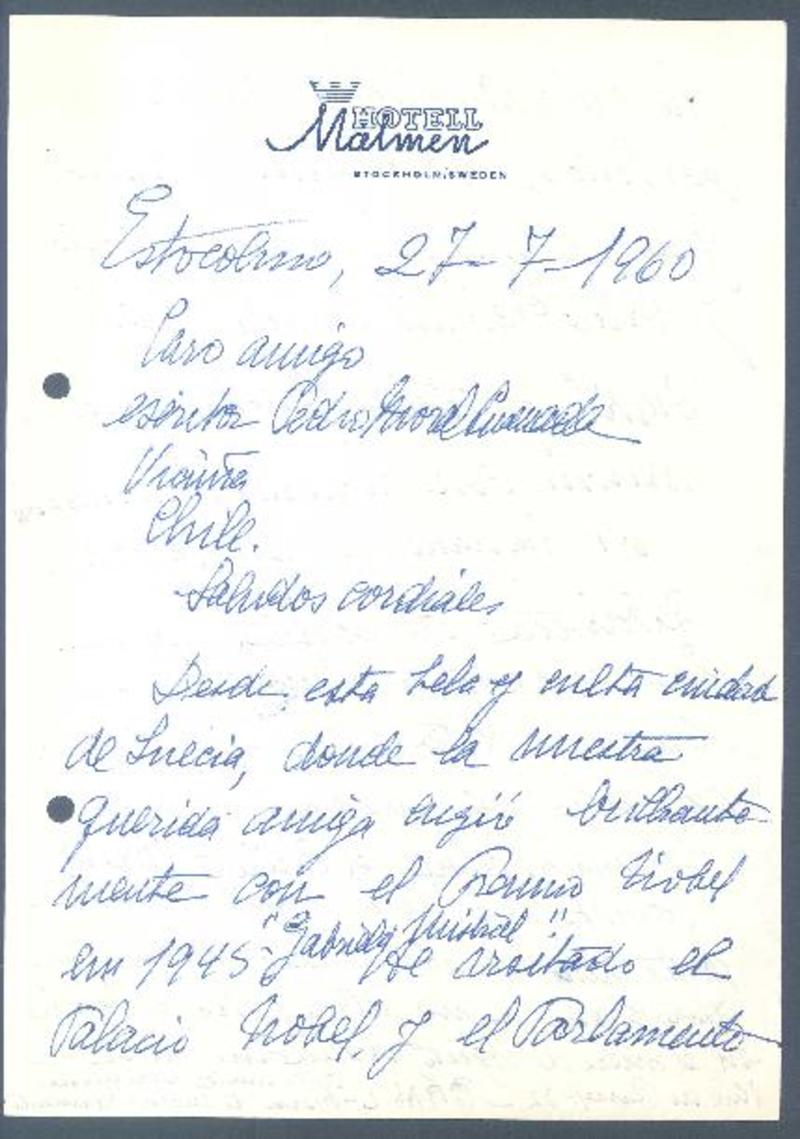 HOTELL
Malmen
STOCKHOLM/SWEDEN
Estocolmo, 27-7-1960
Caro amigo
escritor Pedro
Vicuña
Chile.
Saludos cordiales
Desde esta bela y culta ciudad
de Suecia, donde la nuestra
querida amiga brilhante
mente con el Premio Nobel
em 1945 - "Gabriela Mistral"
He visitado el
Palacio Nobel y el Parlamento